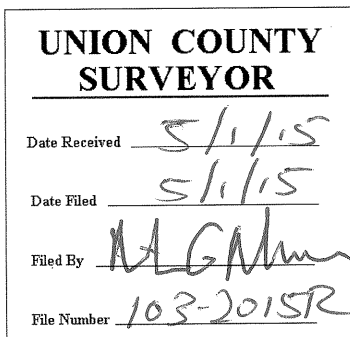 UNION COUNTY
SURVEYOR
Date Received 5/1/15
Date Filed 5/1/15
Filed By
File Number 103-2015R